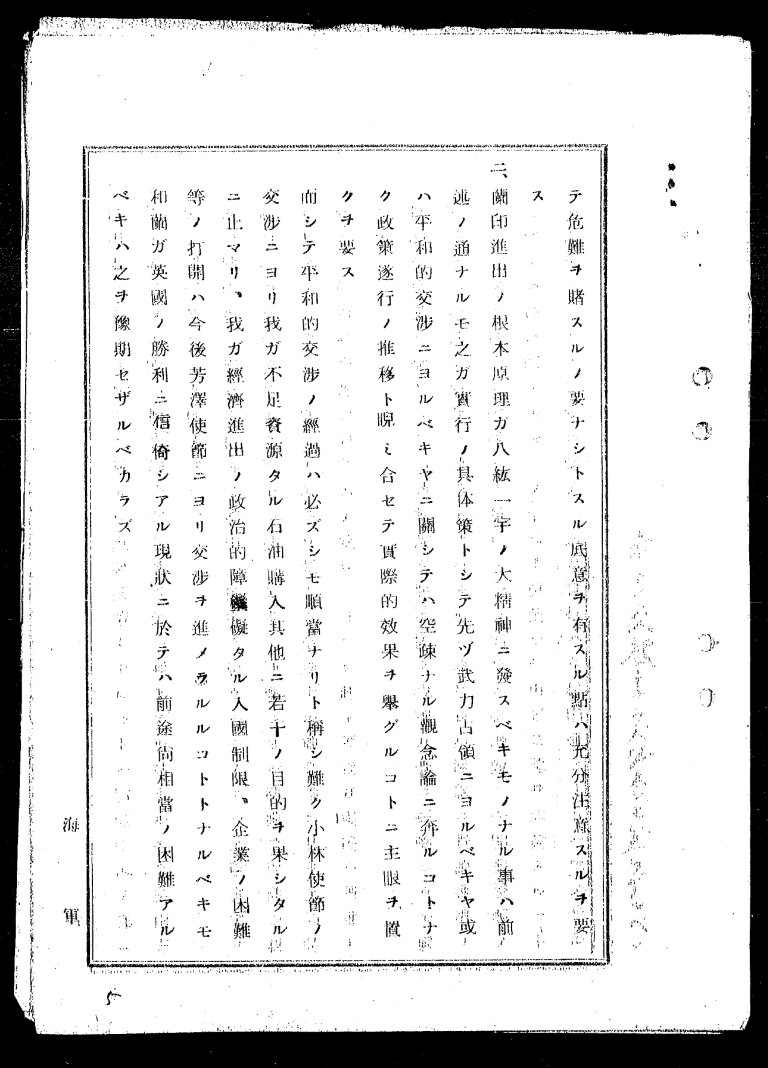 テ危難ヲ賭スルノ要ナシトスル底意ヲ有スル點ハ充分注意スルヲ要
ス
二、蘭印進出ノ根本原理ガ八紘一宇ノ大精神ニ發スベキモノナル事ハ前
述ノ通ナルモ之ガ實行ノ具体策トシテ先ヅ武力占領ニヨルベキヤ或
ハ平和的交渉ニヨルベキヤニ關シテハ空疎ナル觀念論ニ奔ルコトナ
ク政策遂行ノ推移ト睨ミ合セテ實際的效果ヲ擧グルコトニ主眼ヲ置
クヲ要ス
而シテ平和的交渉ノ經過ハ必ズシモ順當ナリト稱シ難ク小林使節ノ
交渉ニヨリ我ガ不足資源タル石油購入其他ニ若干ノ目的ヲ果シタル
ニ止マリ、我ガ經濟進出ノ政治的障礙タル入國制限、企業ノ困難
等ノ打開ハ今後芳澤使節ニヨリ交渉ヲ進メラルルコトトナルベキモ
和蘭ガ英國ノ勝利ニ信倚シアル現狀ニ於テハ前途尙相當ノ困難アル
ベキハ之ヲ豫期セザルベカラズ
海軍
5